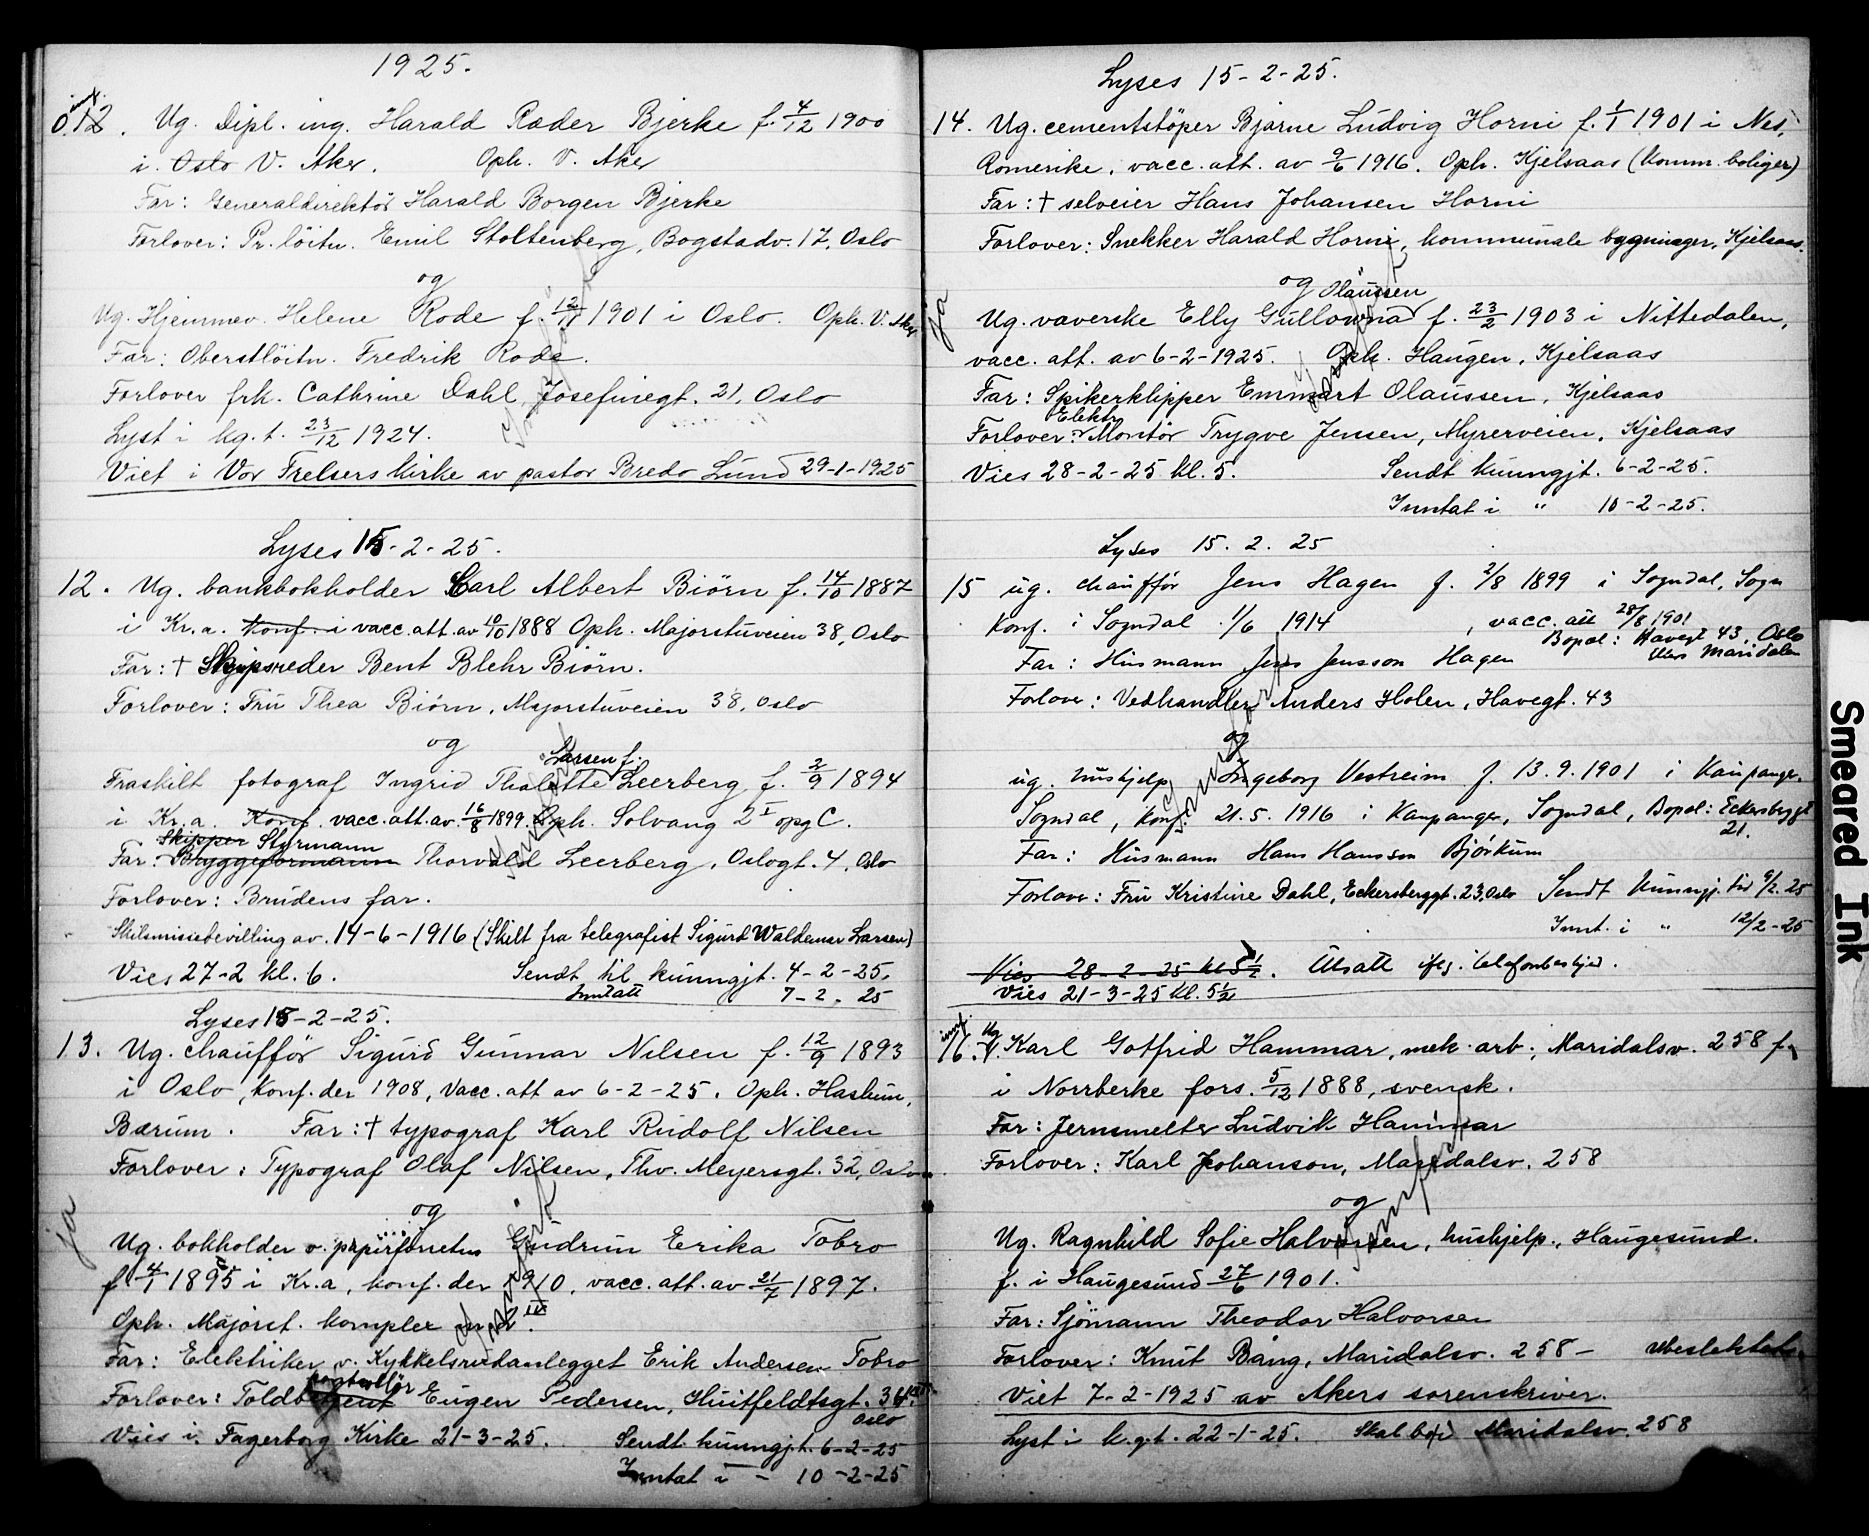 1925.
innf.
012. Ug. Dipl. ing. Harald Ræder Bjerke f. 4/12 1900
i Oslo V. Aker. Oph. V. Aker
Far: Generaldirektör Harald Borgen Bjerke
Forlover: Pr. löitn. Emil Stoltenberg, Bogstadv. 17, Oslo
og
Ug. Hjemmev. Helene Rode f. 12/11 1901 i Oslo. Oph. V. Aker
Far: Oberstlöitn. Fredrik Rode.
Forlover frk. Cathrine Dahl, Josefinegt. 21, Oslo
Lyst i kg.t. 23/12 1924.
Viet i Vor Frelsers kirke av pastor Bredo Lund 29-1-1925
Lyses 15-2-25.
12. Ug. bankbokholder Carl Albert Biörn f. 14/10 1887
i Kr.a. konf. i vacc. att. av 10/10 1888 Oph. Majorstuveien 38, Oslo
Far: † Skipsreder Bent Blehr Biörn.
Forlover: Fru Thea Biörn, Majorstuveien 38, Oslo
og
Larsen f.
Fraskilt fotograf Ingrid Thalette Leerberg f. 2/9 1894
i Kr.a. Konf. vacc. att. av. 16/8 1899. Oph. Solvang 2 I opg C.
Skipper Styrmann
Far: Bryggeformann Thorvald Leerberg, Oslogt. 4, Oslo
Forlover: Brudens far.
Skilsmissebevilling av. 14-6-1916 (Skilt fra telegrafist Sigurd Waldemar Larsen)
Vies 27-2 kl. 6. Sendt til kunngjt. 4-2-25.
Inntatt 7-2-25
Lyses 15-2-25.
13. Ug. chaufför Sigurd Gunnar Nilsen f. 12/9 1893
i Oslo, konf. der 1908, vacc. att av 6-2-25. Oph. Haslum,
Bærum. Far: † typograf Karl Rudolf Nilsen
Forlover: Typograf Olaf Nilsen, Thv. Meyersgt. 32, Oslo
ja
og
Ug. bokholder v. papirforretn Gudrun Erika Tobro
f. 4/1 1895 i Kr.a, konf. der 1910, vacc. att. av 21/7 1897.
Oph. Majorst. komplex
Far: Elektriker v. Kykkelsrudanlegget Erik Andersen Tobro
kontrollör
Forlover: Toldbetjent Eugen Pedersen, Huitfeldtsgt. 36
Oslo
Vies i Fagerborg Kirke 21-3-25. Sendt. kunngjt. 6-2-25
Inntat i - 10-2-25
Lyses 15-2-25.
14. Ug. cementstöper Bjarne Ludvig Horni f. 1/1 1901 i Nes,
Romerike, vacc. att. av 9/6 1916. Oph. Kjelsaas (komm. boliger)
Far: † selveier Hans Johansen Horni
Forlover: Snekker Harald Horni, kommunale bygninger, Kjelsaas.
ja
og Olaussen
Ug. væverske Elly Gullowna f. 23/2 1903 i Nittedalen,
vacc. att. av 6-2-1925. Oph. Haugen, Kjelsaas
Far: Spikerklipper Emmart Olaussen, Kjelsaas
Elektr.
Forlover: Montör Trygve Jensen, Myrerveien, Kjelsaas
Vies 28-2-25 kl. 5. Sendt kunngjt. 6-2-25.
Inntat i " 10-2-25.
Lyses 15. 2. 25
15 ug. chaufför Jens Hagen f. 2/8 1899 i Sogndal, Sogn
Konf. i Sogndal 1/6 1914, vacc. att 28/8 1901
Bopæl: Havegt 43, Oslo
ellers Maridalen
Far: Husmann Jens Jensson Hagen
Forlover: Vedhandler Anders Holen, Havegt. 43
og
ug. hushjelp Ingeborg Vestreim f. 13.9.1901 i Kaupanger
Sogndal, konf. 21.5.1916 i Kaupanger, Sogndal, Bopæl: Eckersbergt
21.
Far: Husmann Hans Hansson Bjørkum
Forlover: Fru Kristine Dahl, Eckersberggt. 23, Oslo Sendt kunngj. tid 9/2. 25
Innt. i " 12/2-25
Vies 28-2-25 kl 5 1/2. Utsatt ifLg. telefonbeskjed.
Vies 21-3-25 kl. 5 1/2
innf.
16. Ug. Karl Gotfrid Hammar, mek. arb., Maridalsv. 258 f.
i Norrberke fors. 5/12 1888, svensk.
Far: Jernsmelter Ludvik Hammar
Forlover: Karl Johanson, Maridalsv. 258
og
Ug. Ragnhild Sofie Halvorsen, hushjelp., Haugesund.
f. i Haugesund 27/6 1901.
Far: Sjömann Theodor Halvorsen
Forlover: Knut Bång, Maridalsv. 258 - ubeslektede.
Viet 7-2-1925 av Akers sorenskriver.
Lyst i k.g.t. 22-1-25. Skal bo i Maridalsv. 258
Smeared Ink